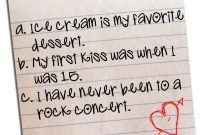 a. Ice cream is my favorite
dessert.
b. My first kiss was when I
was 15.
c. I have never been to a
rock concert.